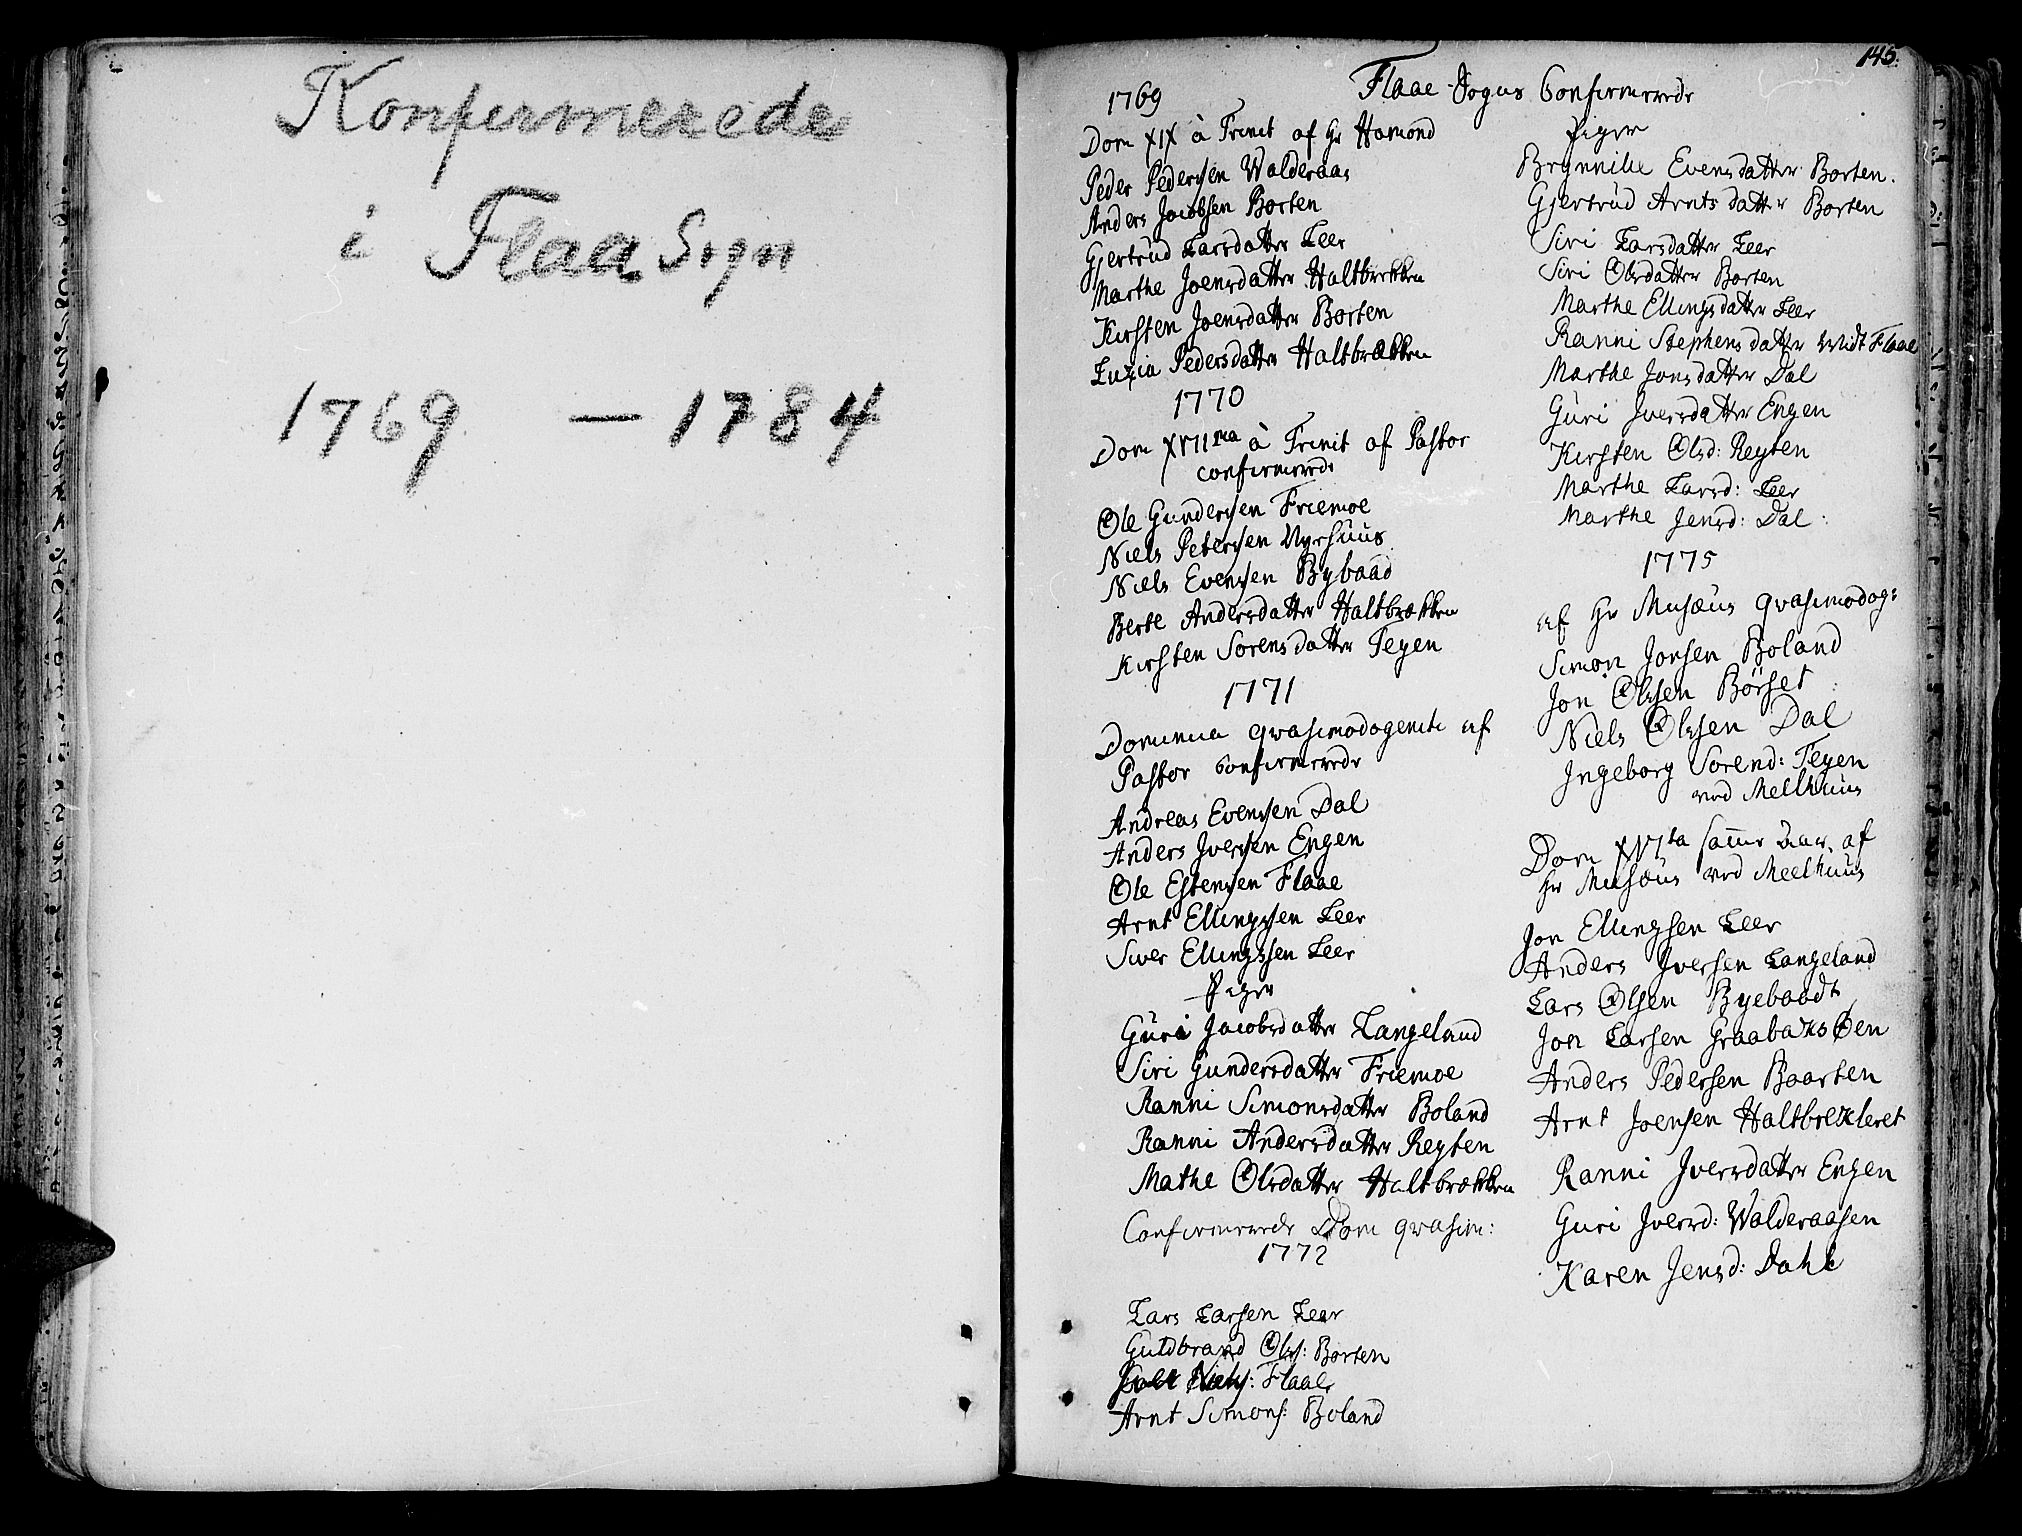 Konfermerede
i Flaa Sogn
1769 — 1784
145.
Flaae Sogns Confirmerede
1769
Dom XIX à Trinit af Hr Hamond
Peder Pedersen Walderaas
Anders Jacobsen Borten
Gjertrud Larsdatter Leer
Marthe Joensdatter Haltbrekken
Kirsten Joensdatter Borten
Luzia Pedersdatter Haltbrækken
1770
Dom XVII ma à Trinit af Pastor
confirmerede
Ole Gundersen Friemoe
Niels Petersen Nyrhuus
Niels Evensen Bybaad
Berte Andersdatter Haltbrækken
Kirsten Sorensdatter Teyen
1771
Dominica qvasimodogeniti af
Pastor Confirmerede
Andreas Evensen Dal
Anders Iversen Engen
Ole Estensen Flaae
Arnt Ellingsen Leer
Siver Ellingssen Leer
Piger
Guri Jacobsdatter Langeland
Siri Gundersdatter Friemoe
Ranni Simonsdatter Boland
Ranni Andersdatter Reyten
Mathe Olsdatter Haltbrækken
Confirmerede Dom qvasim:
1772
Lars Larsen Leer
Guldbrand Ols: Borten
Niels: Flaae
Arnt Simons: Boland
Piger
Brynnille Evensdatter Borten.
Gjertrud Arntsdatter Borten
Siri Larsdatter Leer
Siri Olsdatter Borten
Marthe Ellingsdatter Leer
Ranni Stephensdatter Widt Flaae
Marthe Jonsdatter Dal
Guri Iversdatter Engen
Kirsten Olsd: Reyten
Marthe Larsd: Leer
Marthe Jensd: Dal:
1775
af Hr Musæus qvasimodog:
Simon Jonsen Boland
Jon Olsen Börset
Niels Olsen Dal
Ingeborg Sorend: Teyen
ved Melhuus
Dom XVI ta samme Aar af
Hr Musæus ved Meelhuus
Jon Ellingsen Leer
Anders Iversen Langeland
Lars Olsen Byebaadt
Jon Larsen Graabaks Øen
Anders Pedersen Baarten
Arnt Joensen Haltbrekleret
Ranni Iversdatter Engen
Guri Iversd: Walderaasen
Karen Jensd: Dahl